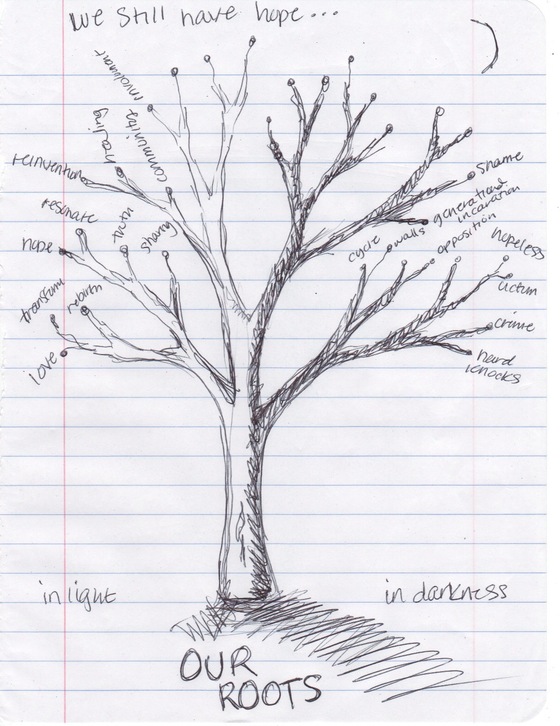 we still have hope...
involvment
healing
community
reinvention
resinate
truth
sharing
hope
transform
rebirth
love
shame
generational
incarnation
cycle
walls
opposition
hopeless
victim
crime
hard
knocks
in light
in darkness
OUR
ROOTS